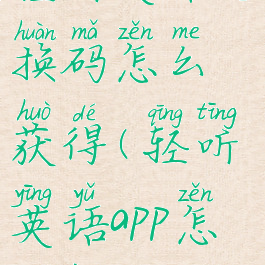 huàn mǎ zěn me
换码怎么
huò dé qīng tīng
获得(轻听
yīng yǔ zěn
英语app怎